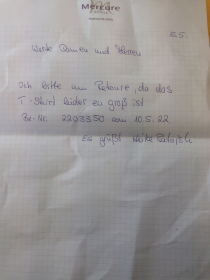 Mercure
E.S.
Werte Damen und Herren
Ich bitte um Retoure, da das
T-Shirt leider zu groß ist
Be-Nr. 2203350 vom 10.5.22
Es grüßt Heike